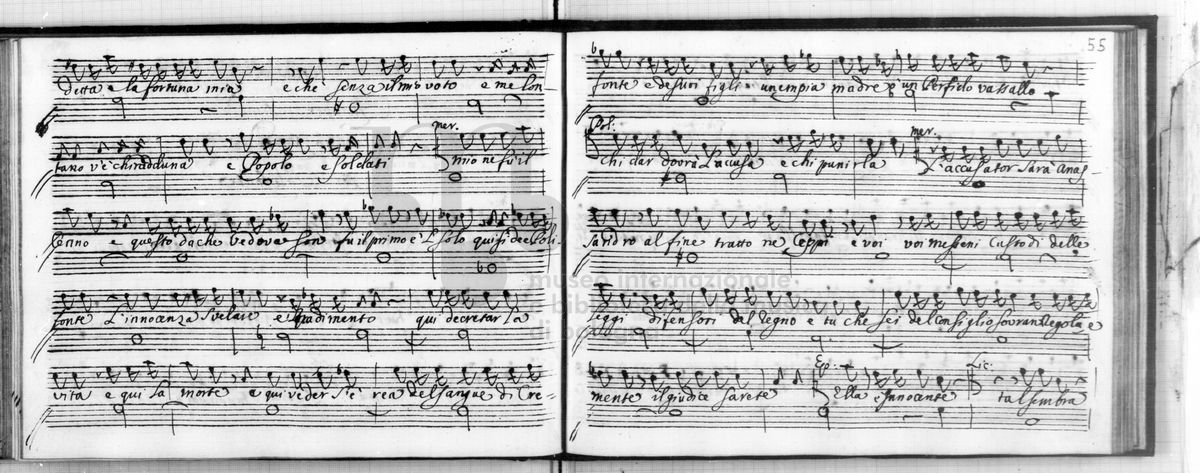 detta e la fortuna mia e che senza il mio voto e me lon-
tano v'è chi radduna e Popolo e soldati mer. mio ne fu il
Cenno e questo da che vedova son fu il primo e'l solo qui si dee Poli-
fonte L'innocenza svelare e'l tradimento qui decretar la
vita e qui la morte e qui veder s'è rea del sangue di Cre-
55
fonte e de suoi figli un empia madre o un Perfido vassallo
Pol: chi dar dovrà l'accusa e chi punirla mer. L'accusator sarà Anas-
sandro al fine tratto ne Ceppi e voi voi messeni Custodi delle
leggi difensori del Regno e tu che sei del Consiglio sovran Regola e
mente il giudice sarete Ep: Ella è innocente Lic: tal sembra
museo internazionale
e biblio
di bo